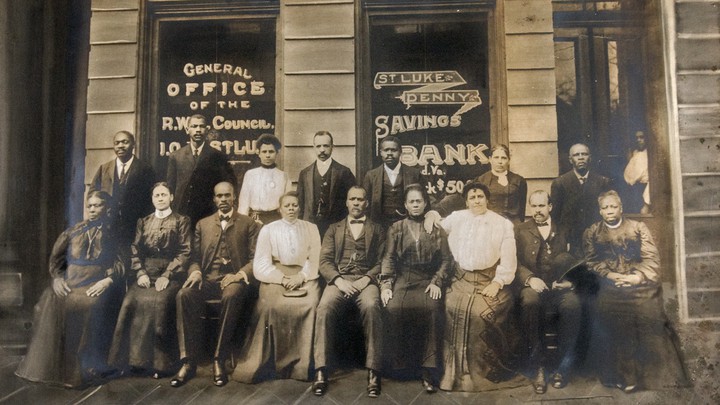 GENERAL
OFFICE
OF THE
R.W. COUNCIL.
I.O. ST LU
ST LUKE
PENNY
SAVINGS
BANK
d. Va.
k $50